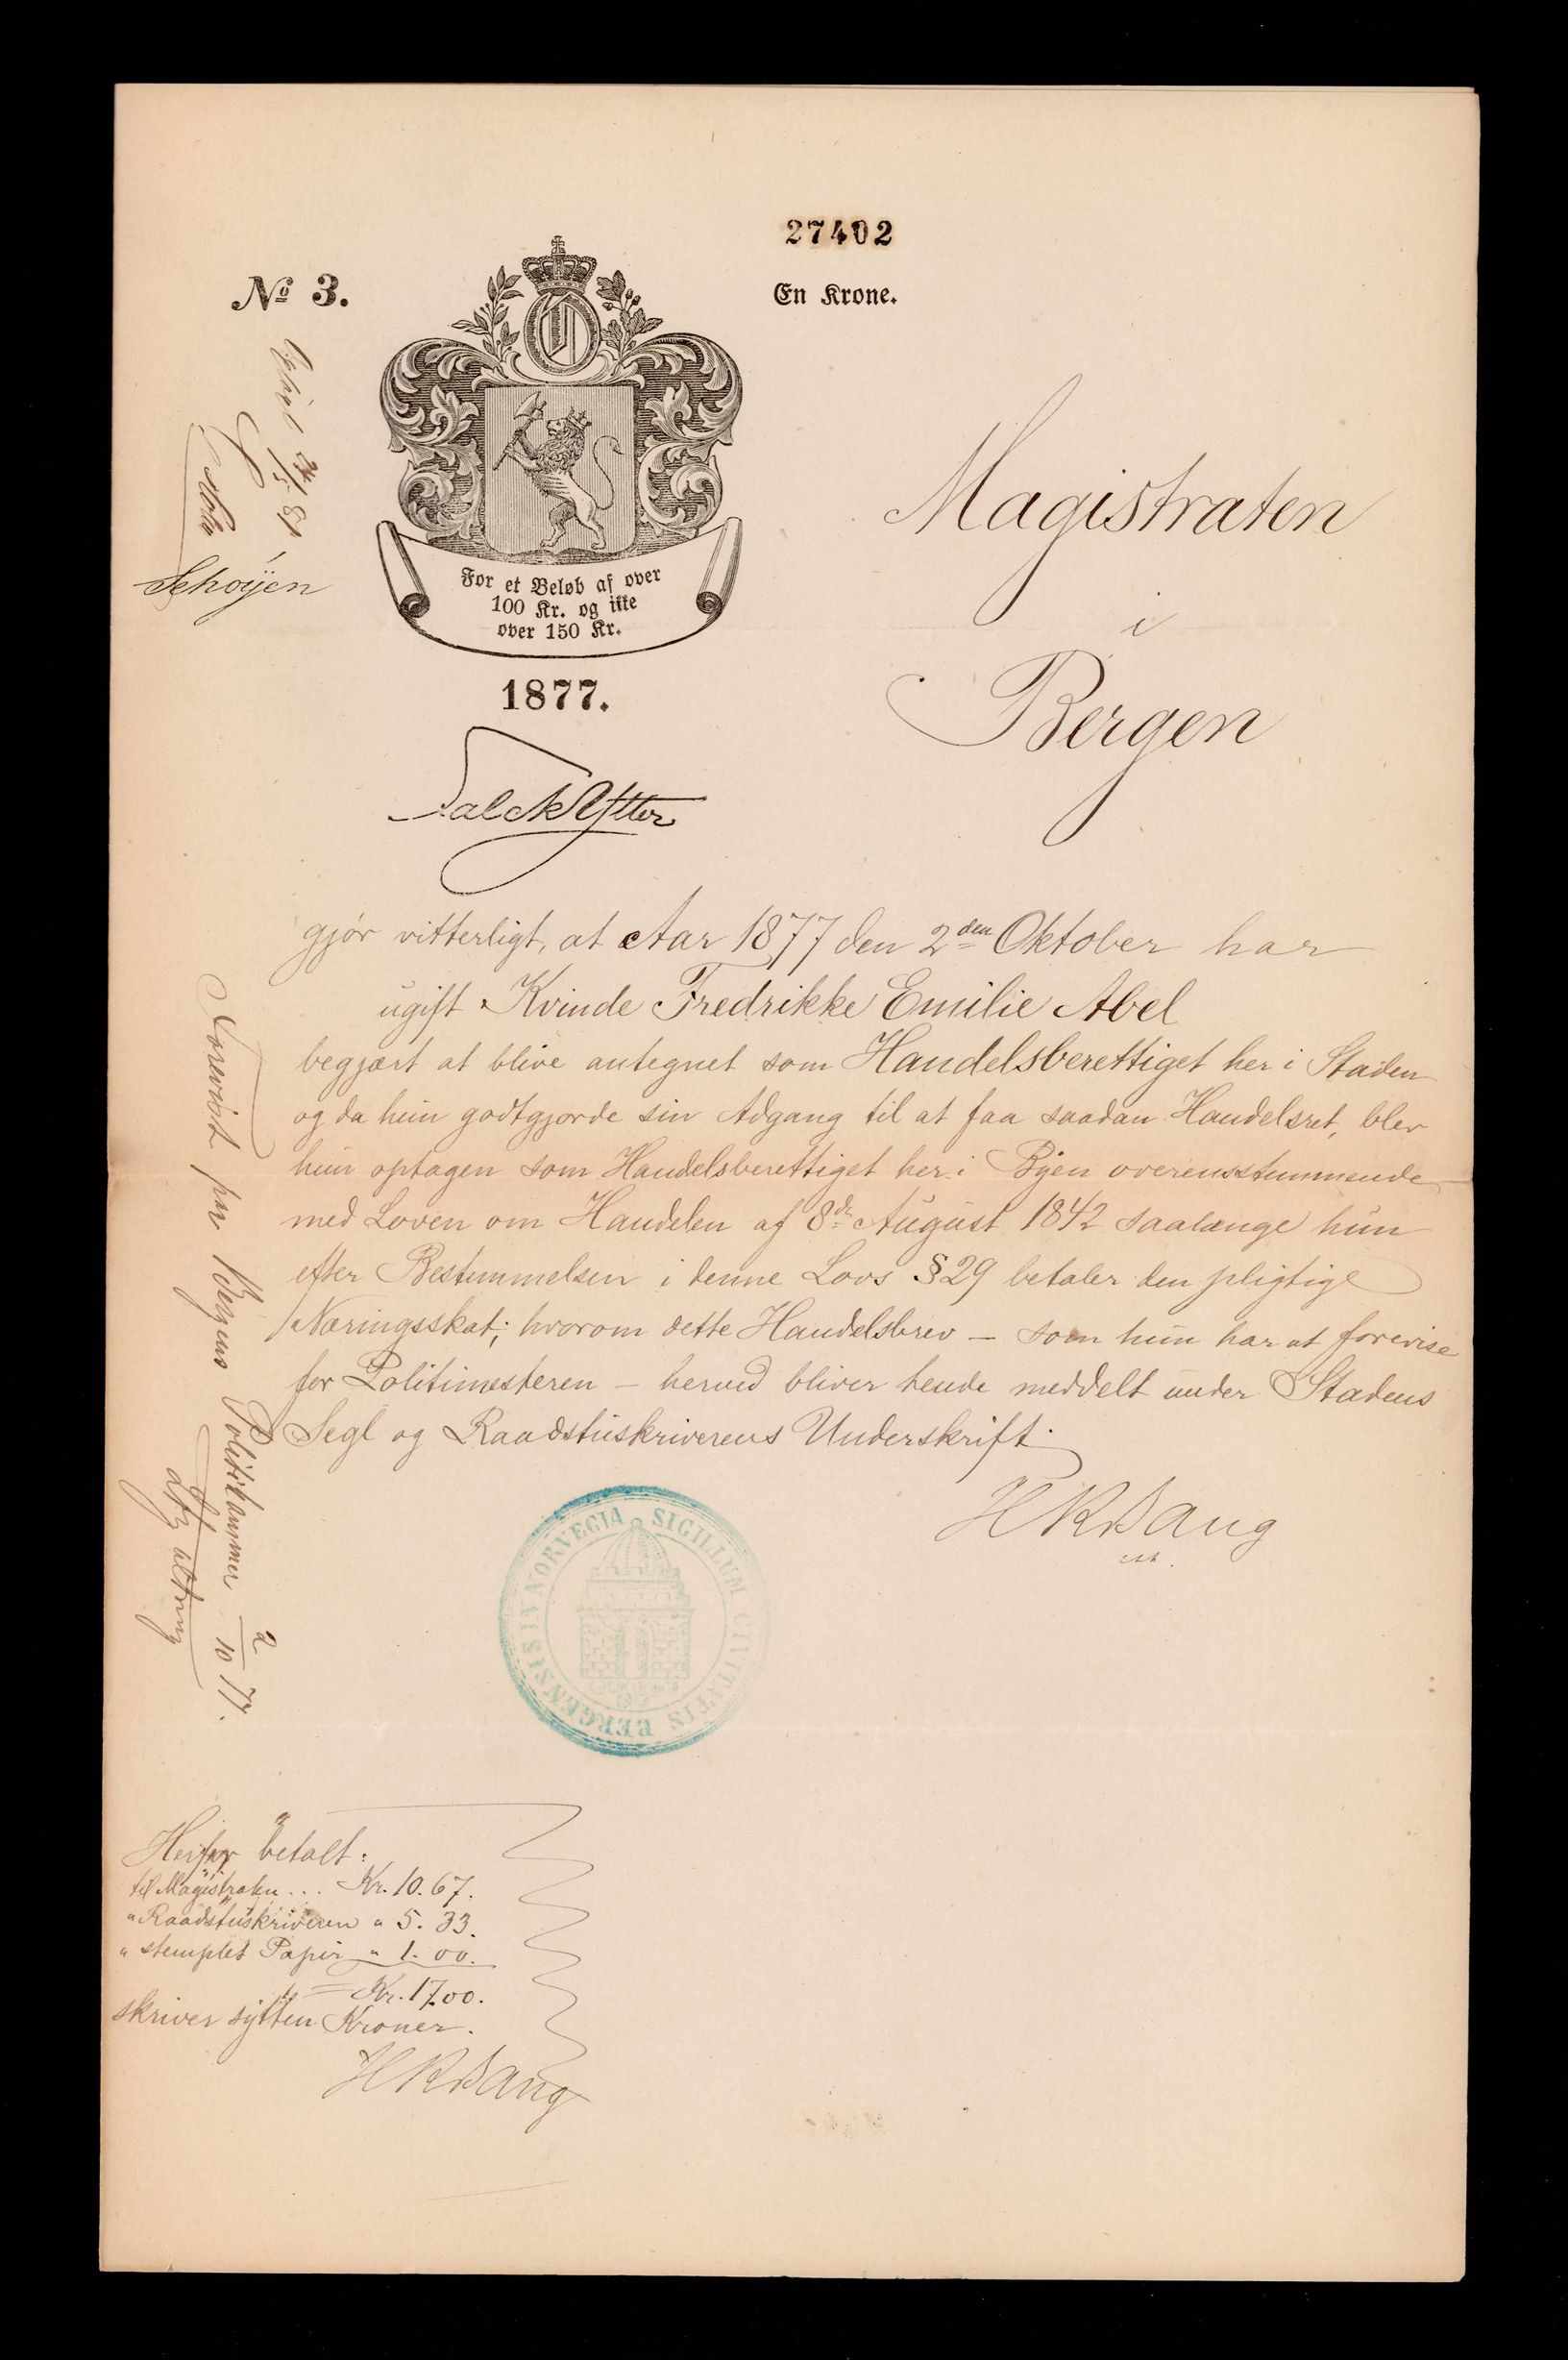 27402
No 3.
En Krone.
Schøyen
For et Beløb af over
100 Kr. og ikke
over 150 Kr.
1877.
Falck Ytter
Magistraten
i
Bergen
gjør vitterligt, at Aar 1877 den 2den Oktober har
ugift Kvinde Fredrikke Emilie Abel
begjært at blive antegnet som Handelsberettiget her i Staden
og da hun godtgjorde sin Adgang til at faa saadan Handelsret, blev
hun optagen som Handelsberettiget her i Byen overensstemmende
med Loven om Handelen af 8de August 1842 saalænge hun
efter Bestemmelsen i denne Lovs § 29 betaler den pligtige
Næringsskat; hvorom dette Handelsbrev – som hun har at forevise
for Politimesteren – herved bliver hende meddelt under Stadens
Segl og Raadstuskriverens Underskrift.
H R Bang
SIGILLUM CIVITATIS BERGENSIS IN NORVEGIA
Forevist paa Bergens Politikammer 2/10 77.
Herfor betalt:
til Magistraten ... Kr. 10.67.
" Raadstuskriveren " 5.33.
" stemplet Papir " 1.00.
= Kr. 17.00.
skriver sytten Kroner.
H R Bang